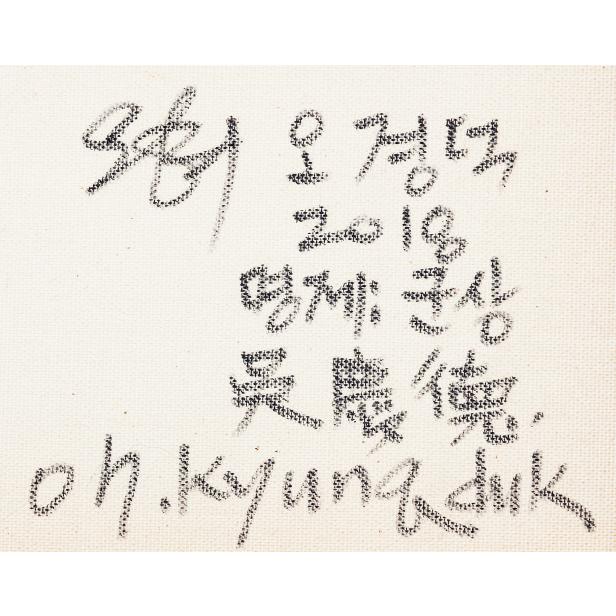 오경덕
2018
명제: 군상
吳慶德.
oh.kyung duk